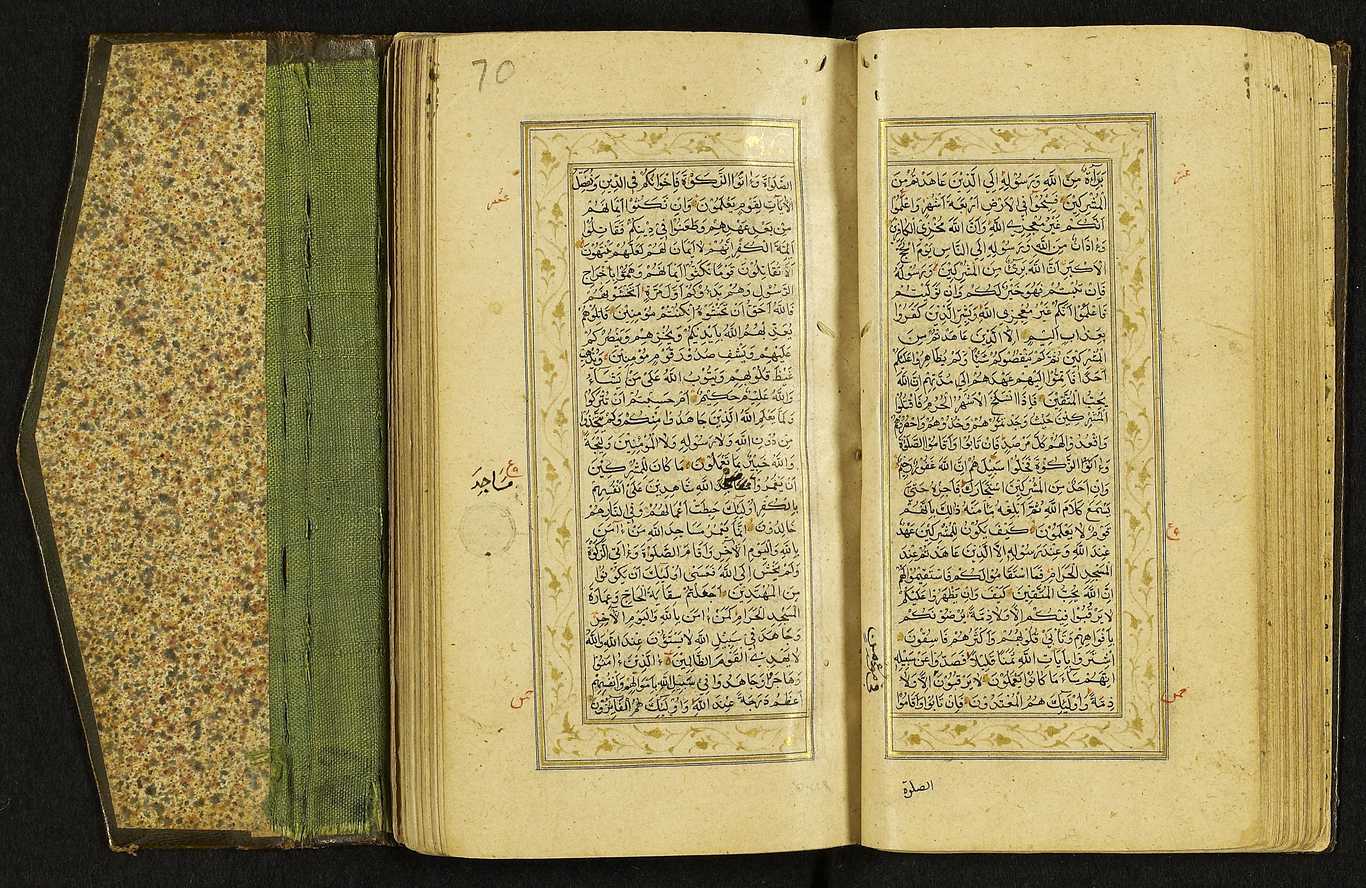 بَرَآءَةٌ مِنَ اللَّهِ وَرَسُولِهِ إِلَى الَّذِينَ عَاهَدْتُمْ مِنَ
الْمُشْرِكِينَ فَسِيحُوا فِي الْأَرْضِ أَرْبَعَةَ أَشْهُرٍ وَاعْلَمُوا
أَنَّكُمْ غَيْرُ مُعْجِزِي اللَّهِ وَأَنَّ اللَّهَ مُخْزِي الْكَافِرِينَ
وَأَذَانٌ مِنَ اللَّهِ وَرَسُولِهِ إِلَى النَّاسِ يَوْمَ الْحَجِّ
الْأَكْبَرِ أَنَّ اللَّهَ بَرِيءٌ مِنَ الْمُشْرِكِينَ وَرَسُولُهُ
فَإِنْ تُبْتُمْ فَهُوَ خَيْرٌ لَكُمْ وَإِنْ تَوَلَّيْتُمْ
فَاعْلَمُوا أَنَّكُمْ غَيْرُ مُعْجِزِي اللَّهِ وَبَشِّرِ الَّذِينَ كَفَرُوا
بِعَذَابٍ أَلِيمٍ إِلَّا الَّذِينَ عَاهَدْتُمْ مِنَ
الْمُشْرِكِينَ ثُمَّ لَمْ يَنْقُصُوكُمْ شَيْئًا وَلَمْ يُظَاهِرُوا عَلَيْكُمْ
أَحَدًا فَأَتِمُّوا إِلَيْهِمْ عَهْدَهُمْ إِلَى مُدَّتِهِمْ إِنَّ اللَّهَ
يُحِبُّ الْمُتَّقِينَ فَإِذَا انْسَلَخَ الْأَشْهُرُ الْحُرُمُ فَاقْتُلُوا
الْمُشْرِكِينَ حَيْثُ وَجَدْتُمُوهُمْ وَخُذُوهُمْ وَاحْصُرُوهُمْ
وَاقْعُدُوا لَهُمْ كُلَّ مَرْصَدٍ فَإِنْ تَابُوا وَأَقَامُوا الصَّلٰوةَ
وَآتَوُا الزَّكٰوةَ فَخَلُّوا سَبِيلَهُمْ إِنَّ اللَّهَ غَفُورٌ رَحِيمٌ
وَإِنْ أَحَدٌ مِنَ الْمُشْرِكِينَ اسْتَجَارَكَ فَأَجِرْهُ حَتَّى
يَسْمَعَ كَلَامَ اللَّهِ ثُمَّ أَبْلِغْهُ مَأْمَنَهُ ذَالِكَ بِأَنَّهُمْ
قَوْمٌ لَا يَعْلَمُونَ كَيْفَ يَكُونُ لِلْمُشْرِكِينَ عَهْدٌ
عِنْدَ اللَّهِ وَعِنْدَ رَسُولِهِ إِلَّا الَّذِينَ عَاهَدْتُمْ عِنْدَ
الْمَسْجِدِ الْحَرَامِ فَمَا اسْتَقَامُوا لَكُمْ فَاسْتَقِيمُوا لَهُمْ
إِنَّ اللَّهَ يُحِبُّ الْمُتَّقِينَ كَيْفَ وَإِنْ يَظْهَرُوا عَلَيْكُمْ
لَا يَرْقُبُوا فِيكُمْ إِلًّا وَلَا ذِمَّةً يُرْضُونَكُمْ
بِأَفْوَاهِهِمْ وَتَأْبَى قُلُوبُهُمْ وَأَكْثَرُهُمْ فَاسِقُونَ
اشْتَرَوْا بِآيَاتِ اللَّهِ ثَمَنًا قَلِيلًا فَصَدُّوا عَنْ سَبِيلِهِ
إِنَّهُمْ سَاءَ مَا كَانُوا يَعْمَلُونَ لَا يَرْقُبُونَ إِلًّا وَلَا
فِي مُؤْمِنٍ
ذِمَّةً وَأُولَئِكَ هُمُ الْمُعْتَدُونَ فَإِنْ تَابُوا وَأَقَامُوا
الصلوة
70
الصَّلٰوةَ وَآتَوُا الزَّكٰوةَ فَإِخْوَانُكُمْ فِي الدِّينِ وَنُفَصِّلُ
الْآيَاتِ لِقَوْمٍ يَعْلَمُونَ وَإِنْ نَكَثُوا أَيْمَانَهُمْ
مِنْ بَعْدِ عَهْدِهِمْ وَطَعَنُوا فِي دِينِكُمْ فَقَاتِلُوا
أَئِمَّةَ الْكُفْرِ إِنَّهُمْ لَا أَيْمَانَ لَهُمْ لَعَلَّهُمْ يَنْتَهُونَ
أَلَا تُقَاتِلُونَ قَوْمًا نَكَثُوا أَيْمَانَهُمْ وَهَمُّوا بِإِخْرَاجِ
الرَّسُولِ وَهُمْ بَدَءُوكُمْ أَوَّلَ مَرَّةٍ أَتَخْشَوْنَهُمْ
فَاللَّهُ أَحَقُّ أَنْ تَخْشَوْهُ إِنْ كُنْتُمْ مُؤْمِنِينَ قَاتِلُوهُمْ
يُعَذِّبْهُمُ اللَّهُ بِأَيْدِيكُمْ وَيُخْزِهِمْ وَيَنْصُرْكُمْ
عَلَيْهِمْ وَيَشْفِ صُدُورَ قَوْمٍ مُؤْمِنِينَ وَيُذْهِبْ
غَيْظَ قُلُوبِهِمْ وَيَتُوبُ اللَّهُ عَلَى مَنْ يَشَآءُ
وَاللَّهُ عَلِيمٌ حَكِيمٌ أَمْ حَسِبْتُمْ أَنْ تُتْرَكُوا
وَلَمَّا يَعْلَمِ اللَّهُ الَّذِينَ جَاهَدُوا مِنْكُمْ وَلَمْ يَتَّخِذُوا
مِنْ دُونِ اللَّهِ وَلَا رَسُولِهِ وَلَا الْمُؤْمِنِينَ وَلِيجَةً
وَاللَّهُ خَبِيرٌ بِمَا تَعْمَلُونَ مَا كَانَ لِلْمُشْرِكِينَ
أَنْ يَعْمُرُوا اللَّهِ شَاهِدِينَ عَلَى أَنْفُسِهِمْ
مَسَاجِدَ
بِالْكُفْرِ أُولَئِكَ حَبِطَتْ أَعْمَالُهُمْ وَفِي النَّارِ هُمْ
خَالِدُونَ إِنَّمَا يَعْمُرُ مَسَاجِدَ اللَّهِ مَنْ آمَنَ
بِاللَّهِ وَالْيَوْمِ الْآخِرِ وَأَقَامَ الصَّلٰوةَ وَآتَى الزَّكٰوةَ
وَلَمْ يَخْشَ إِلَّا اللَّهَ فَعَسَى أُولَئِكَ أَنْ يَكُونُوا
مِنَ الْمُهْتَدِينَ أَجَعَلْتُمْ سِقَايَةَ الْحَاجِّ وَعِمَارَةَ
الْمَسْجِدِ الْحَرَامِ كَمَنْ آمَنَ بِاللَّهِ وَالْيَوْمِ الْآخِرِ
وَجَاهَدَ فِي سَبِيلِ اللَّهِ لَا يَسْتَوُونَ عِنْدَ اللَّهِ وَاللَّهُ
لَا يَهْدِي الْقَوْمَ الظَّالِمِينَ الَّذِينَ آمَنُوا
وَهَاجَرُوا وَجَاهَدُوا فِي سَبِيلِ اللَّهِ بِأَمْوَالِهِمْ وَأَنْفُسِهِمْ
أَعْظَمُ دَرَجَةً عِنْدَ اللَّهِ وَأُولَئِكَ هُمُ الْفَائِزُونَ